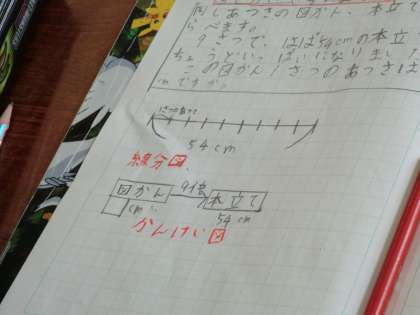 同じあつさの図かん、本立て
らべます。
9さつで、はば54cmの本立
ちょうどいっぱいになりま
この図かん1さつのあつさは
cmですか。
1さつのあつさ
54cm
線分図
図かん 9倍 本立て
□cm 54cm
かんけい図